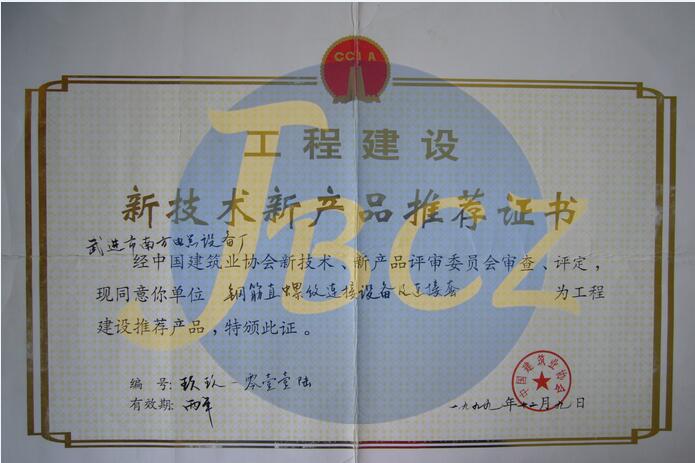 CCIA
工程建设
新技术新产品推荐证书
JBCZ
武进市南方电器设备厂
经中国建筑业协会新技术、新产品评审委员会审查、评定，
现同意你单位 钢筋直螺纹连接设备及连接套 为工程
建设推荐产品，特颁此证。
编号：玖玖一零壹壹陆
有效期：两年
中国建筑业协会
一九九九年十二月九日